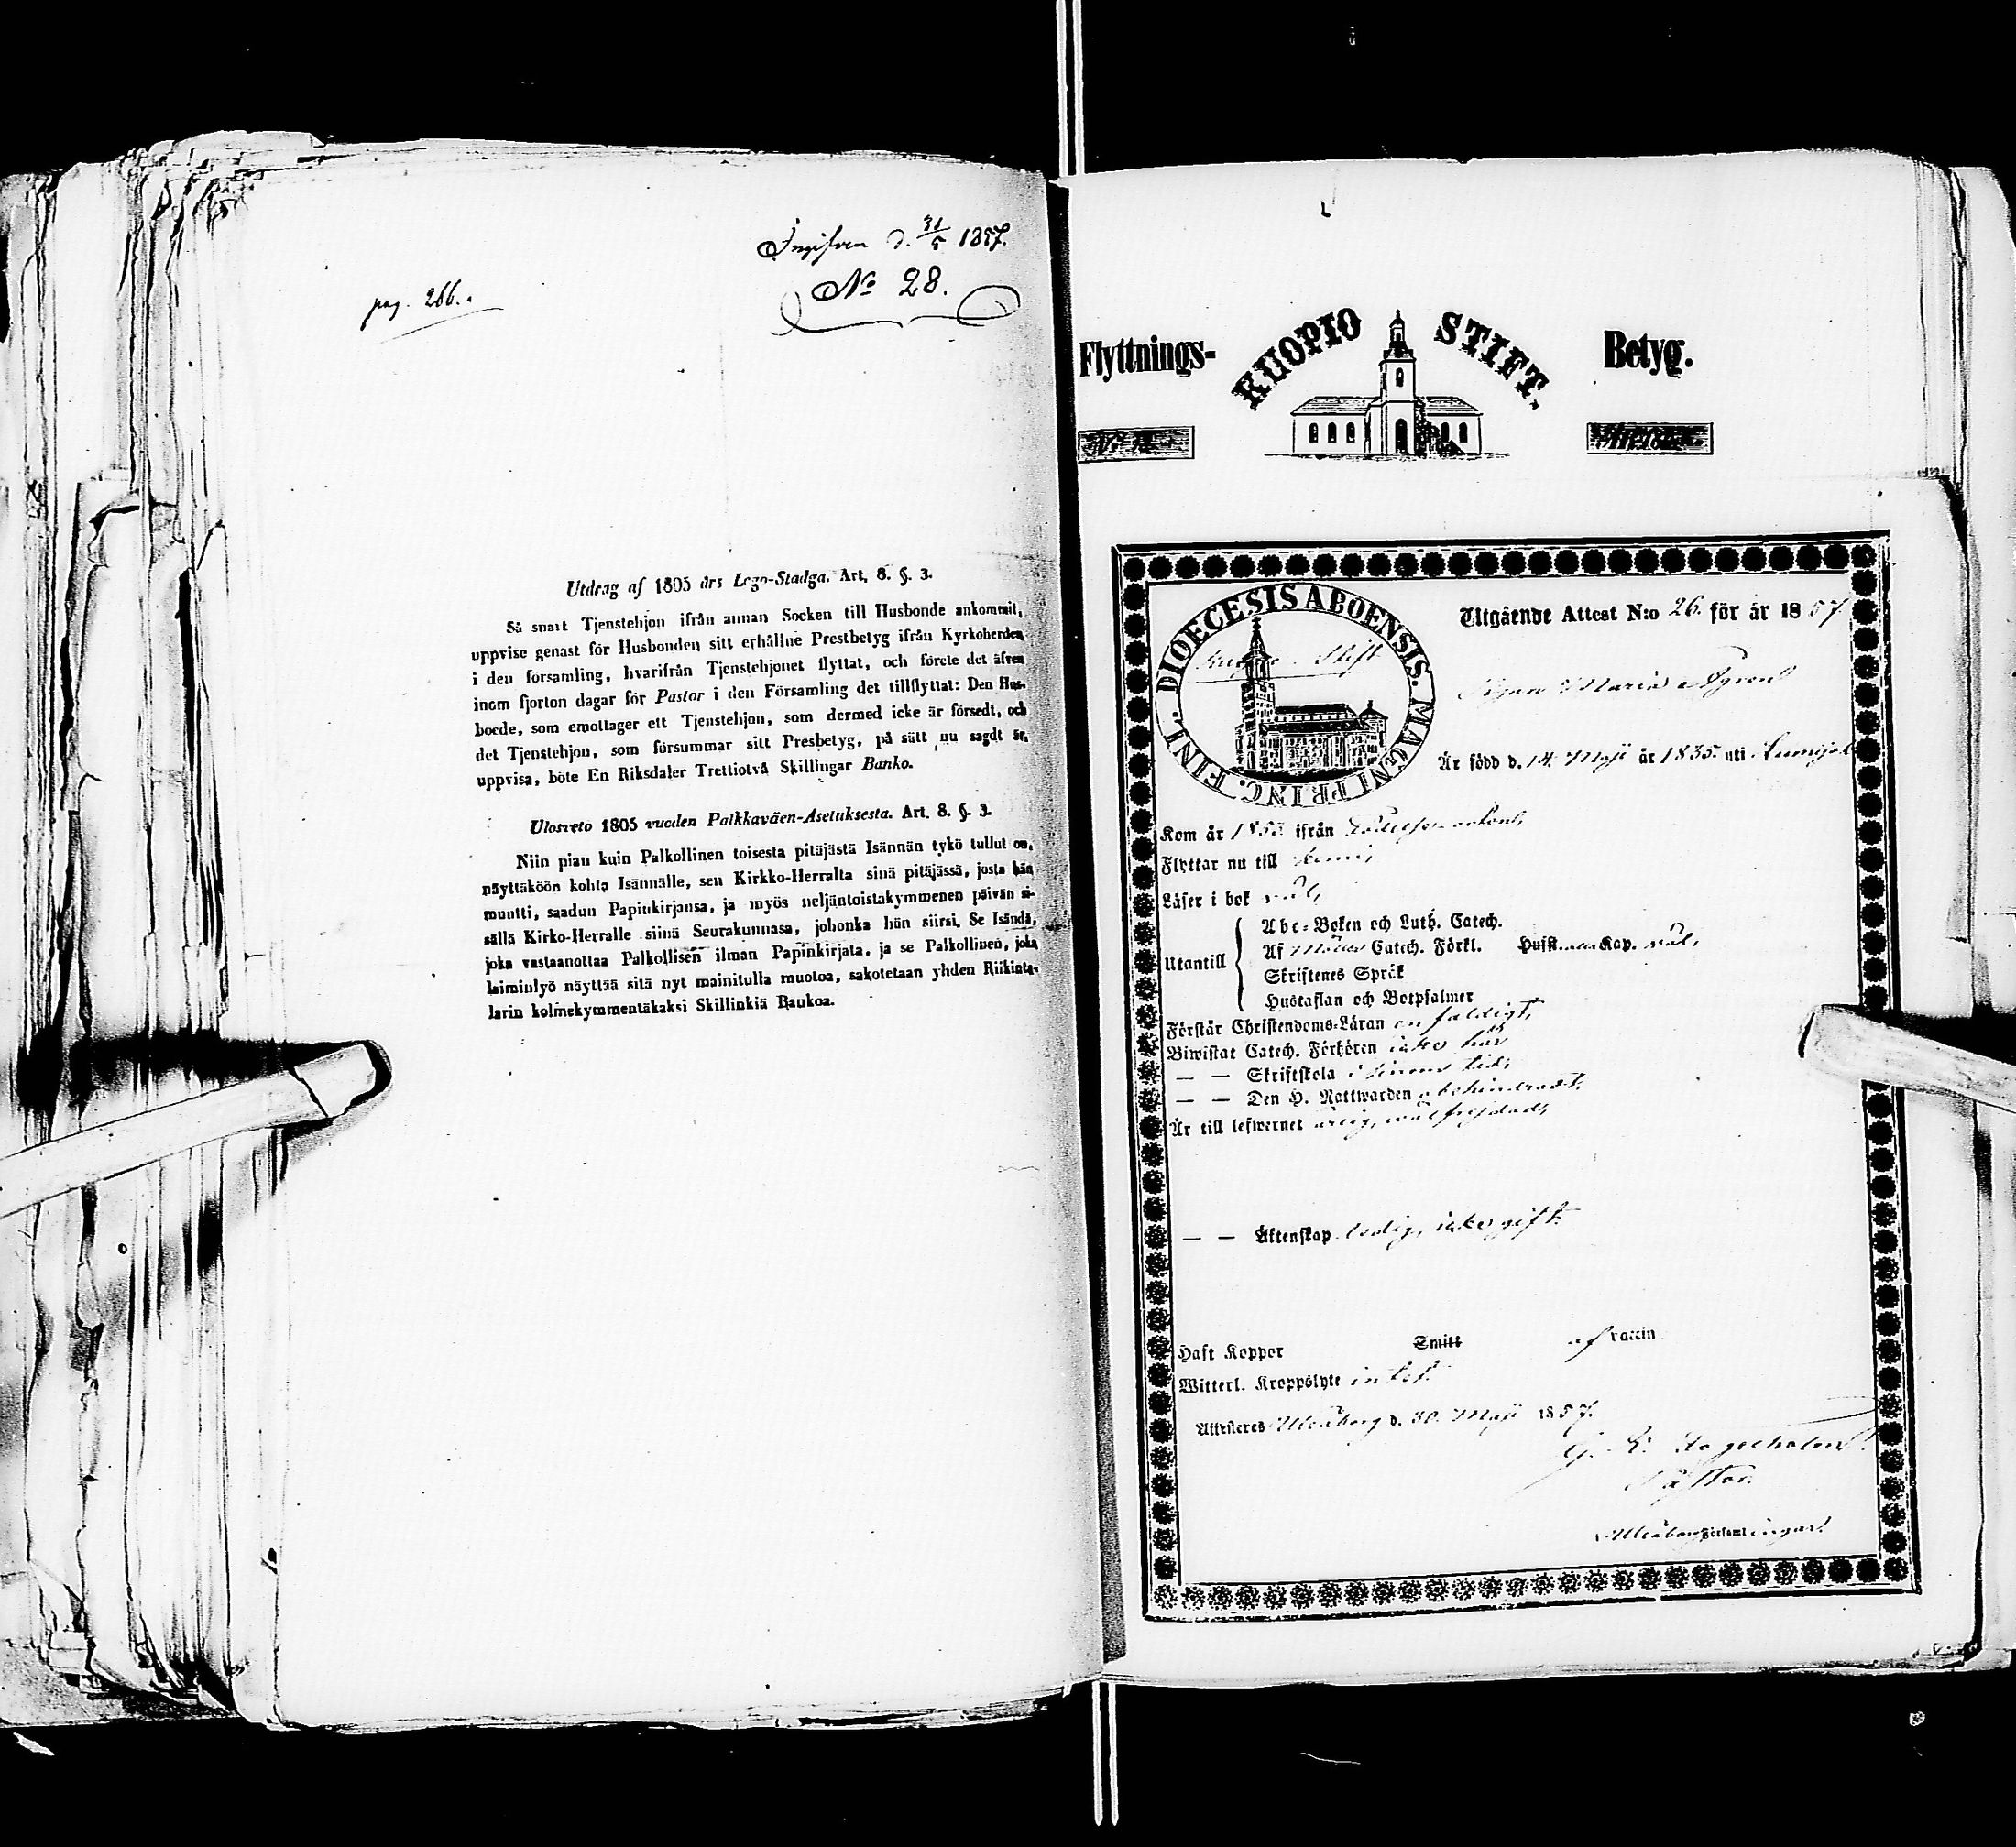 Ingifven d. 31/5 1857.
No 28.
pag. 266.
Utdrag af 1805 års Lego-Stadga. Art. 8. §. 3.
Så snart Tjenstehjon ifrån annan Socken till Husbonde ankommit,
uppvise genast för Husbonden sitt erhållne Prestbetyg ifrån Kyrkoherden
i den församling, hvarifrån Tjenstehjonet flyttat, och förete det äfven
inom fjorton dagar för Pastor i den Församling det tillflyttat: Den Hus-
bonde, som emottager ett Tjenstehjon, som dermed icke är försedt, och
det Tjenstehjon, som försummar sitt Presbetyg, på sätt nu sagdt är,
uppvisa, böte En Riksdaler Trettiotvå Skillingar Banko.
Ulosveto 1805 vuoden Palkkaväen-Asetuksesta. Art. 8. §. 3.
Niin pian kuin Palkollinen toisesta pitäjästä Isännän tykö tullut on,
näyttäköön kohta Isännälle, sen Kirkko-Herralta siinä pitäjässä, josta hän
muutti, saadun Papinkirjansa, ja myös neljäntoistakymmenen päivän si-
sällä Kirko-Herralle siinä Seurakunnasa, johonka hän siirsi. Se Isändä,
joka vastaanottaa Palkollisen ilman Papinkirjata, ja se Palkollinen, joka
laiminlyö näyttää sitä nyt mainitulla muotoa, sakotetaan yhden Riikinta-
larin kolmekymmentäkaksi Skillinkiä Baukoa.
Flyttnings- KUOPIO STIFT. Betyg.
DIOECESIS ABOENSIS. MAGNI PRINC. FINL.
Kuopio Stift
Utgående Attest N:o 26. för år 1857.
Maria
Är född d. 14. Maji år 1835. uti
Kom år ifrån
Flyttar nu till Kemi,
Läser i bok väl,
Utantill
Abc-Boken och Luth. Catech.
Af Catech. Förkl. Husst. Kap. väl,
Skriftenes Språk
Hustaflan och Botpsalmer
Förstår Christendoms-Läran enfaldigt,
Biwistat Catech. Förhören icke här
— — Skriftskola i sinom tid,
— — Den H. Nattwarden obehindradt,
Är till lefwernet ärlig, wälfrejdad,
— — Äktenskap ledig, icke gift.
Haft Koppor Smitt af vaccin
Witterl. Kroppslyte intet.
Attesteras Uleåborg d. 30. Maji 1857.
Pastor.
Uleåborg Församlingar.